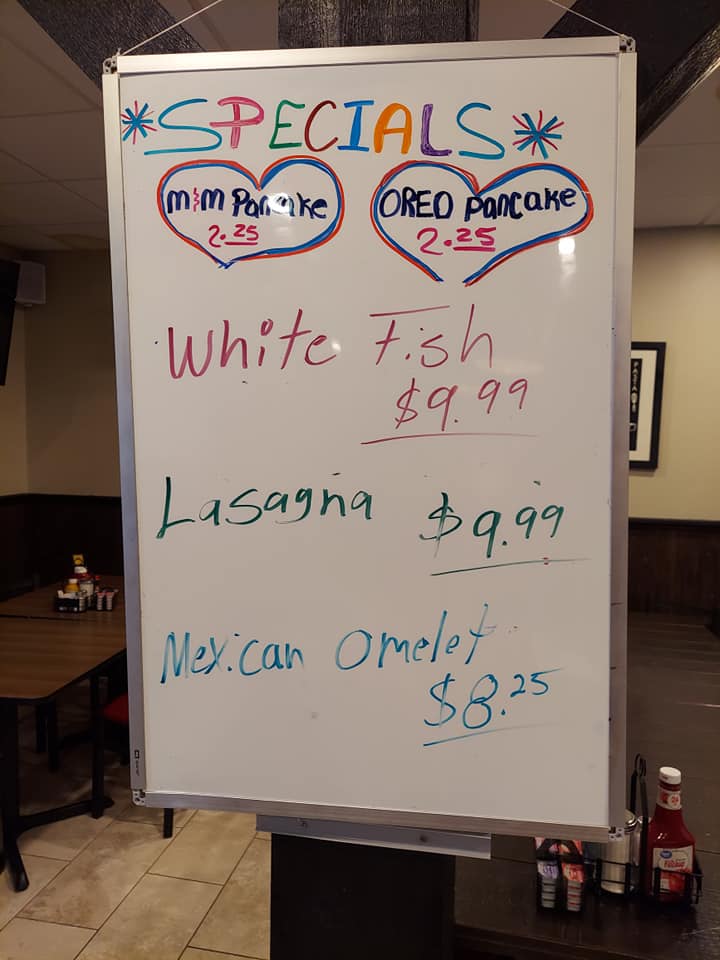 *SPECIALS*
M&M Pancake
2.25
OREO Pancake
2.25
White Fish
$9.99
Lasagna $9.99
Mexican Omelet
$8.25
PASTA